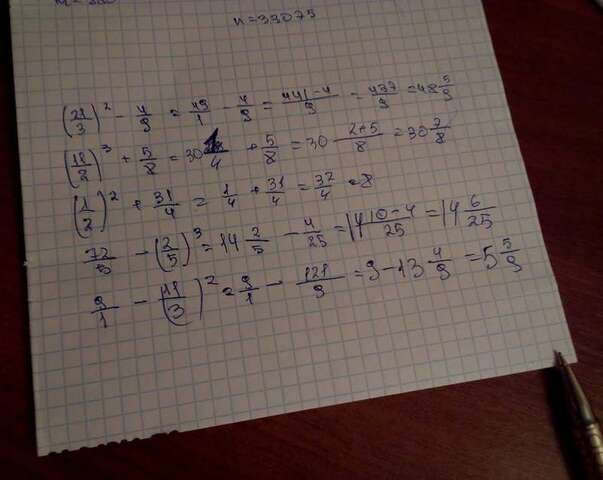 n=33075
(21/3)² - 4/9 = 49/1 - 4/9 = 441-4/9 = 437/9 = 48 5/9
(18/2)³ + 5/8 = 30 1/4 + 5/8 = 30 2+5/8 = 30 7/8
(1/2)² + 31/4 = 1/4 + 31/4 = 32/4 = 8
72/5 - (2/5)³ = 14 2/5 - 4/25 = 14 10-4/25 = 14 6/25
9/1 - 11/3)² = 9/1 - 121/9 = 9-13 4/9 = 5 5/9